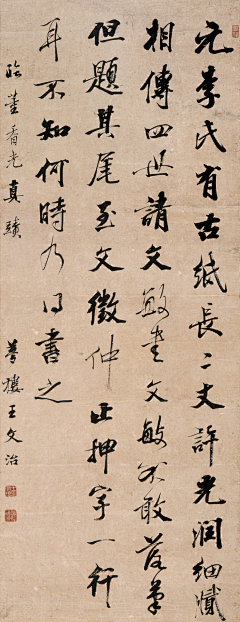 元李氏有古紙長二丈許光润细膩
相傳四世請文敏書文敏不敢落筆
但題其尾至文徵仲止押字一行
耳不知何時乃得書之
臨董香光真蹟
夢樓王文治